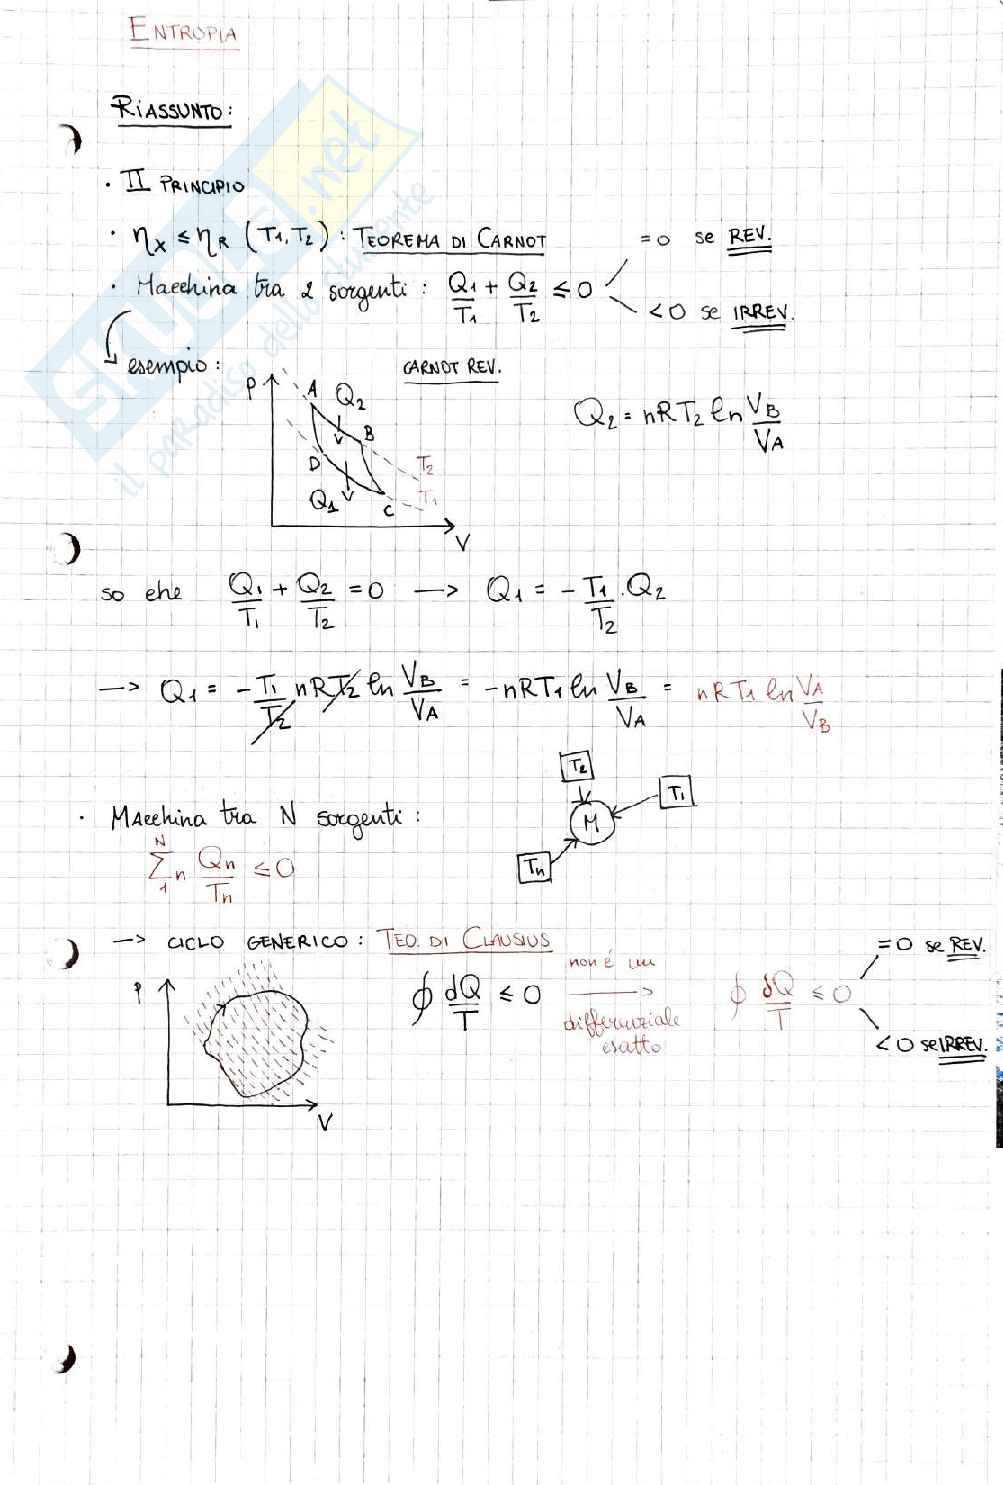 ENTROPIA
RIASSUNTO:
· II PRINCIPIO
· ηx ≤ ηR (T1, T2) : TEOREMA DI CARNOT
= 0 se REV.
· Macchina tra 2 sorgenti : Q1/T1 + Q2/T2 ≤ 0
< 0 se IRREV.
esempio :
CARNOT REV.
P
A
Q2
B
D
T2
Q1
T1
C
V
Q2 = nRT2 ln VB/VA
so che Q1/T1 + Q2/T2 = 0 —> Q1 = - T1/T2 · Q2
—> Q1 = - T1/T2 nRT2 ln VB/VA = -nRT1 ln VB/VA = nRT1 ln VA/VB
T2
T1
M
Tn
· Macchina tra N sorgenti :
N
Σn Qn/Tn ≤ 0
1
—> CICLO GENERICO : TEO. DI CLAUSIUS
= 0 se REV.
P
V
∮ dQ/T ≤ 0
non è un
—>
differenziale
esatto
∮ δQ/T ≤ 0
< 0 se IRREV.
SKUOLA.net
il paradiso dello studente